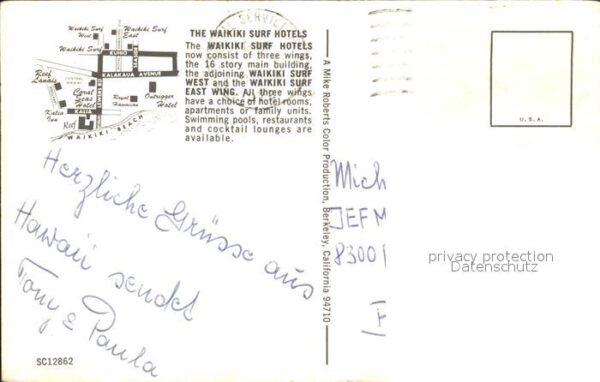 Waikiki Surf West
Waikiki Surf East
Waikiki Surf
KUHIO
KALAKAUA AVENUE
Reef Lanais
Coral Seas Hotel
Royal Hawaiian
Outrigger Hotel
KALIA
Kalia Inn
Reef
WAIKIKI BEACH
SERVICE
THE WAIKIKI SURF HOTELS
The WAIKIKI SURF HOTELS
now consist of three wings,
the 16 story main building,
the adjoining WAIKIKI SURF
WEST and the WAIKIKI SURF
EAST WING. All three wings
have a choice of hotel rooms,
apartments or family units.
Swimming pools, restaurants
and cocktail lounges are
available.
Herzliche Grüsse aus
Hawaii sendet
Tony & Paula
SC12862
A Mike Roberts Color Production, Berkeley, California 94710
U.S.A.
Mich
JEFM
8300
privacy protection
Datenschutz